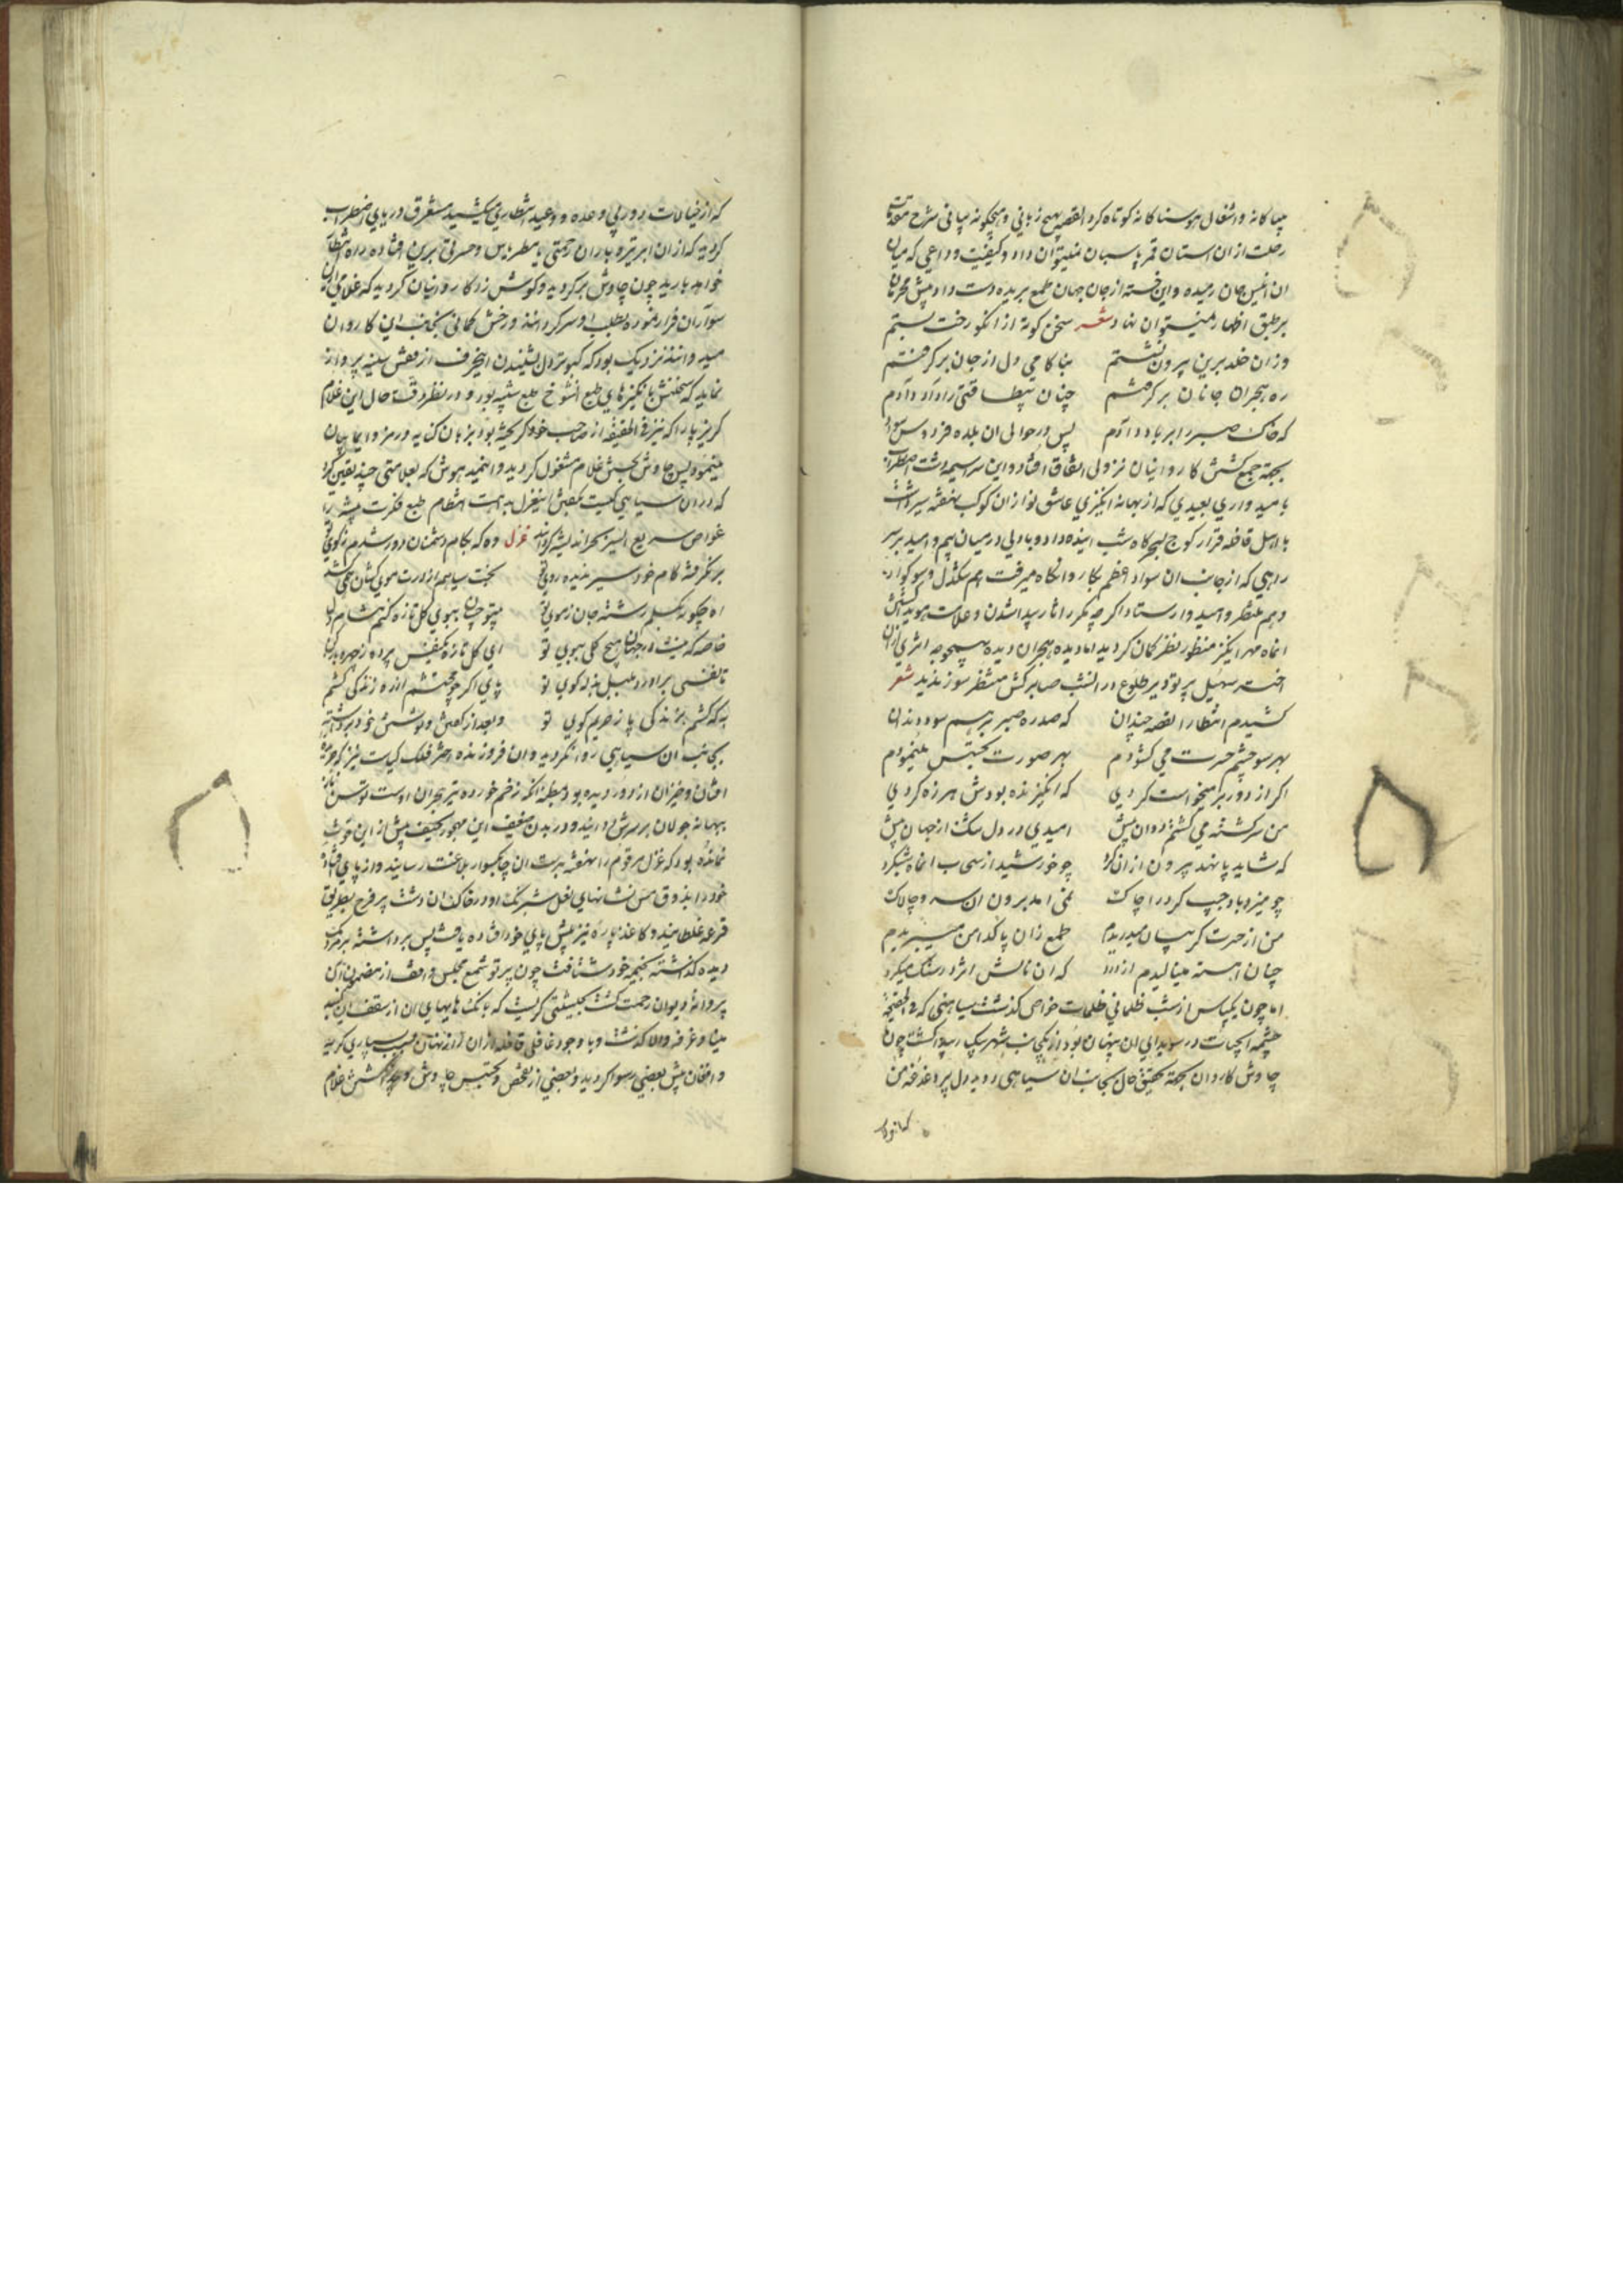 بیباکانه و اشغال هوسناکانه کوتاه کرد القصه بهیچ زبانی و هیچکونه بیانی شرح مقدمات
رحلت ازان استان قمر پاسبان نمیتوان داد و کیفیت وداعی که میان
ان انیس جان رمیده و این خسته از جان جهان طمع بریده دست داد پیش محرمان
بر طبق اظهار نمیتوان نهاد شعر سخن کوته از انکو رخت بستم
وزان خلد برین بیرون نشستم بناکامی دل از جان برکرفتم
ره هجران جانان برکرفتم چنان بیطاقتی راد آدم
که خاک صبر را بر باد دادم پس در حوالی ان بلده فردوس
بجهة جمع کشتن کاروانیان نزولی اتفاق افتاد و این سراسیمه دشت اضطراب
بامیدواری بعیدی که از بهانه انکیزی عاشق نواز ان کوکب نهفته سیر داشت
با اهل قافله قرار کوچ بسحرکاه شب اینده داد و با دلی در میان بیم و امید بر سر
راهی که از جانب ان سواد اعظم بکاروانکاه میرفت هم سنکدل و سوکوار
و هم منتظر و امیدوار ستاد اکرچه مکرر اثار پیدا شدن و علامت هویدا کشتن
انماه مهر انکیز منظور نظر کمان کردید اما دیده هجران دیده بهیچوجه اثری ازان
اختر سهیل پرتو دیر طلوع در انشب صابر کش منتظر سوز ندید شعر
کشیدم انتظار القصه چندان که صد ره صبر بر هم سود دندان
بهر سو چشم حسرت می کشودم بهر صورت تجسس مینمودم
اکر از دور برمیخواست کردی که انکیزنده بودش هرزه کردی
من سرکشته می کشتم دوان پیش امیدی در دل سکت از جهان بیش
که شاید پا نهد بیرون ازان کرد چو خورشید از سحاب انماه شبکرد
چو میزد باد جیب کرد را چاک نمی امد برون ان سرو چالاک
من از حسرت کریبان میدریدم طمع زان پاکدامن میبریدم
چنان اهسته مینالیدم از درد که ان نالش اثر در سنک میکرد
اما چون یکپاس از شب ظلمانی ظلمات خواص کذشت سیاهیی که فی الحقیقة
چشمه آبحیات در سویدای ان پنهان بود از یکجانب شهر سبک پیدا کشت چون
چاوش کاروان بجهة تحقیق حال بجانب ان سیاهی دوید دل پر دغدغه من
که از خیالات دور پی وعده و وعید انتظاری میکشید مستغرق دریای اضطراب
کردید که ازان ابر تیره باران رحمتی یا مطر یاس و حسرتی برین افتاده راه انتظار
خواهد بارید چون چاوش برکردید و کوشش زد کاروانیان کردید که غلامی ازان
سواران فرار نموده بطلب او سرکردانند و رخش کمانی بجانب این کاروان
میدوانند نزدیک بود که کبوتر دل بشنیدن اینحرف از قفس سینه پرواز
نماید که سخنش بانکیزهای طبع انشوخ طبع شبیه بود و در نظر دقت حال این غلام
کریزپا را که نیز فی الحقیقه از صاحب خود کریخته بود بزبان کنایه و رمز و ایما بیان
مینمود پس چاوش بجستن غلام مشغول کردید و این رمیده هوش که بعلامتی چند یقین کرد
که دران سیاهی کیست بکفتن این غزل بدیهت انتظام طبع فکرت پیشه را
غواص سریع السیر بحر اندیشه کردانید غزل وه که بکام دشمنان دور شدم ز کوی تو
بر نکرفته کام خود سیر ندیده روی تو بخت سیاهم از درت موی کشان همی کشد
اه چکونه بکسلم رشته جان ز موی تو بیتو چسان ببوی کل تازه کنم مشام دل
خاصه که نیست در جهان هیچ کلی ببوی تو ای کل تازه یکنفس پرده ز چهره باز کن
تا نفسی براورد بلبل بذله کوی تو پای اکر چو محتشم از ره زندکی کشم
به که کشم بزندکی پا ز حریم کوی تو و بعد از کفتن و نوشتن خود برداشته
بجانب ان سیاهی روانکردید و ان فروزنده اختر فلک کیاست نیز که حرکت
افتان و خیزان از دور دیده بود بمظنه انکه زخم خورده تیر هجران اوست توسن ناز
ببهانه جولان بر سرش دوانید و در بدن ضعیف این مهجور نحیف پیش ازین قوت
نمانده بود که غزل مرقوم را نهفته بدست ان چابکسوار بلاغت رسانید و از پای افتاد
خود را بذوق مس نشانهای نعل شبرنک او در خاک ان دشت پر فرح بطریق
قرعه غلطانید و کاغذ پاره نیز پیش پای خود افتاده یافت پس برداشته بر مردمک
دیده کذاشته بخیمه خود شتافت چون پرتو شمع مجلس واقف از مضمون آن
پروانه دیوان رحمت کشت بحیثیتی کریست که بانک هایهای ان از سقف این کنبد
مینا و غرفه والا کذشت و با وجود غافلی قافله ازان راز نهان بسبب بسیاری کریه
و افغان پیش بعضی رسوا کردید و بعضی از تفحص و تجسس چاوش و جد کشش غلام